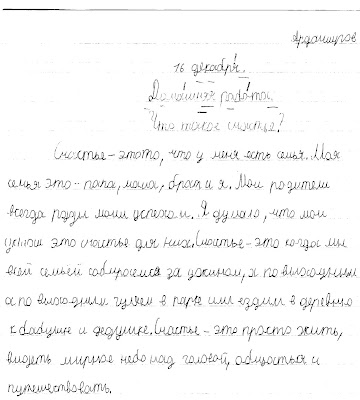 Ардашугов
16 декабря.
Домашняя работа.
Что такое счастье?
Счастье - этото, что у меня есть семья. Моя
семья это - папа, мама, брат и я. Мои родители
всегда рады моим успехам. Я думаю, что мои
успехи это счастье для них. Счастье - это когда мы
всей семьей собираемся за ужином, а по выходным
а по выходным гуляем в парке или ездим в деревню
к бабушке и дедушке. Счастье - это просто жить,
видеть мирное небо над головой, общаться и
путешествовать.